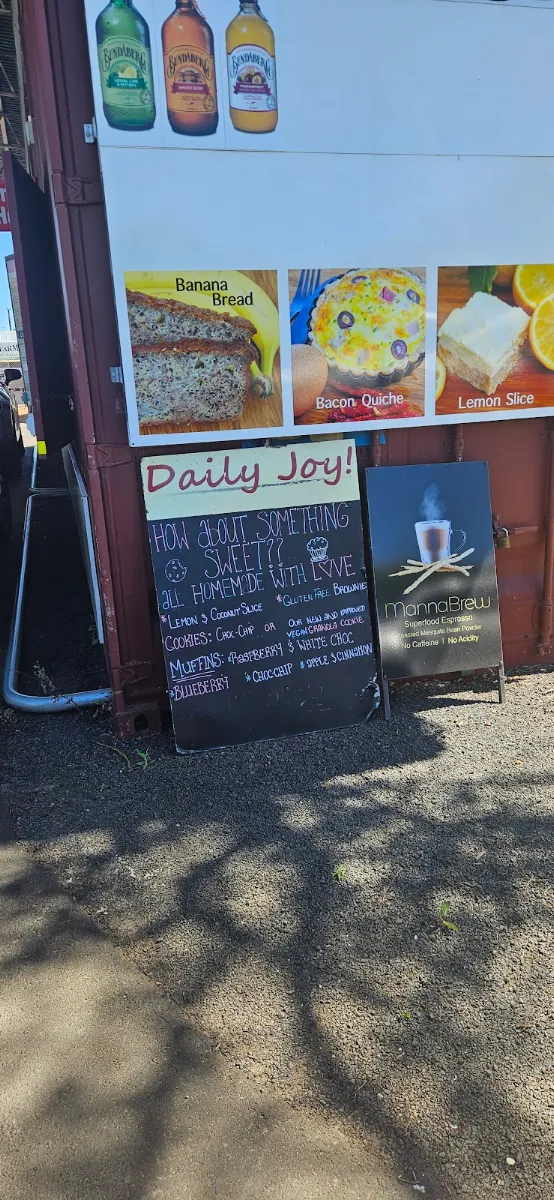 BUNDABERG
BUNDABERG
BUNDABERG
LEMON, LIME & BITTERS
GINGER BEER
PASSIONFRUIT
Banana
Bread
Bacon Quiche
Lemon Slice
Daily Joy!
HOW about SOMETHING
SWEET??
all HOMEMADE WITH LOVE
* LEMON & COCONUT SLICE
* GLUTEN FREE BROWNIE
COOKIES: CHOC-CHIP OR
OUR NEW AND IMPROVED
VEGAN GRANOLA COOKIE
MUFFINS: * RASPBERRY & WHITE CHOC
* BLUEBERRY * CHOC CHIP * APPLE & CINNAMON
MannaBrew
Superfood Espresso
Roasted Mesquite Bean Powder
No Caffeine | No Acidity